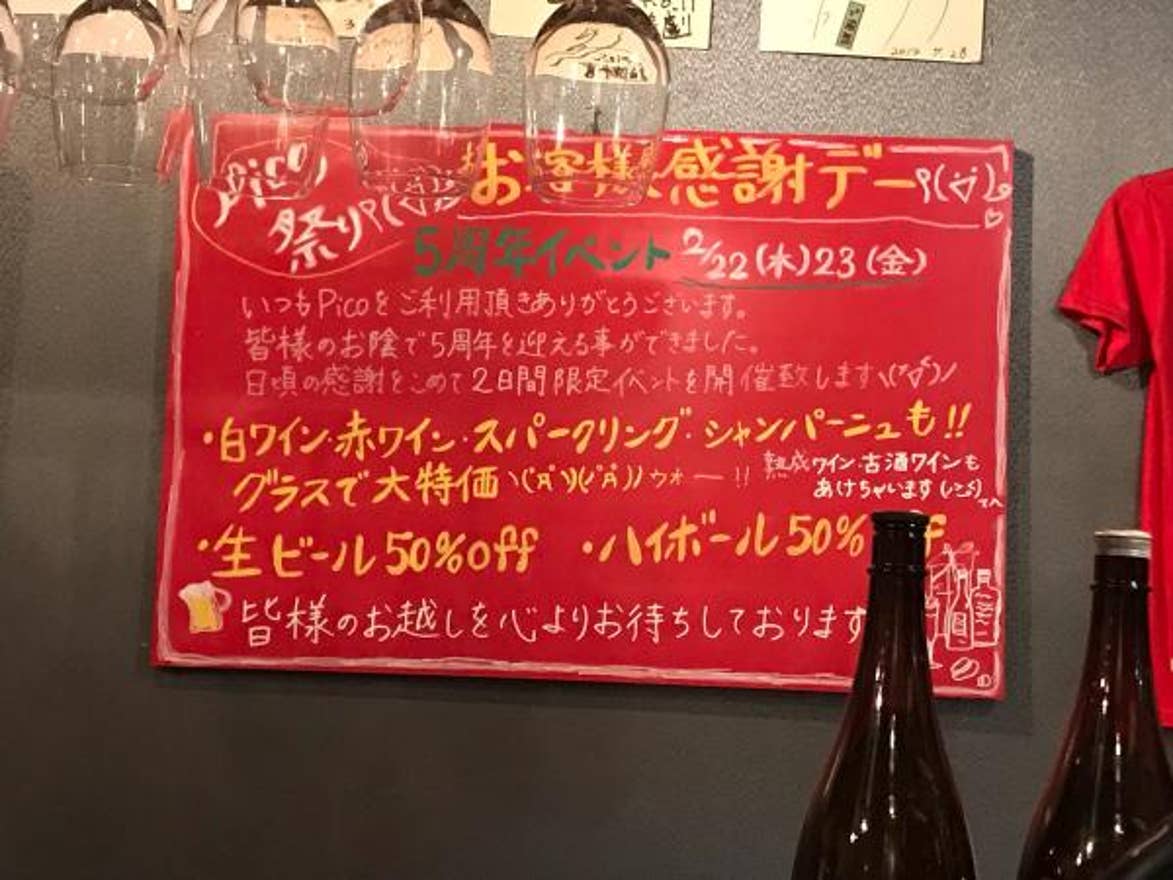 2017.9.28
Pico
祭り
お客様感謝デー
5周年イベント 2/22(木)23(金)
いつもPicoをご利用頂きありがとうございます。
皆様のお陰で5周年を迎える事ができました。
日頃の感謝をこめて2日間限定イベントを開催致します\(^▽^)/
・白ワイン・赤ワイン・スパークリング・シャンパーニュも!!
グラスで大特価ヽ(ﾟДﾟ)(ﾟДﾟ)ノウォー!!
熟成ワイン・古酒ワインも
あけちゃいます
・生ビール50%off ・ハイボール50%
皆様のお越しを心よりお待ちしております